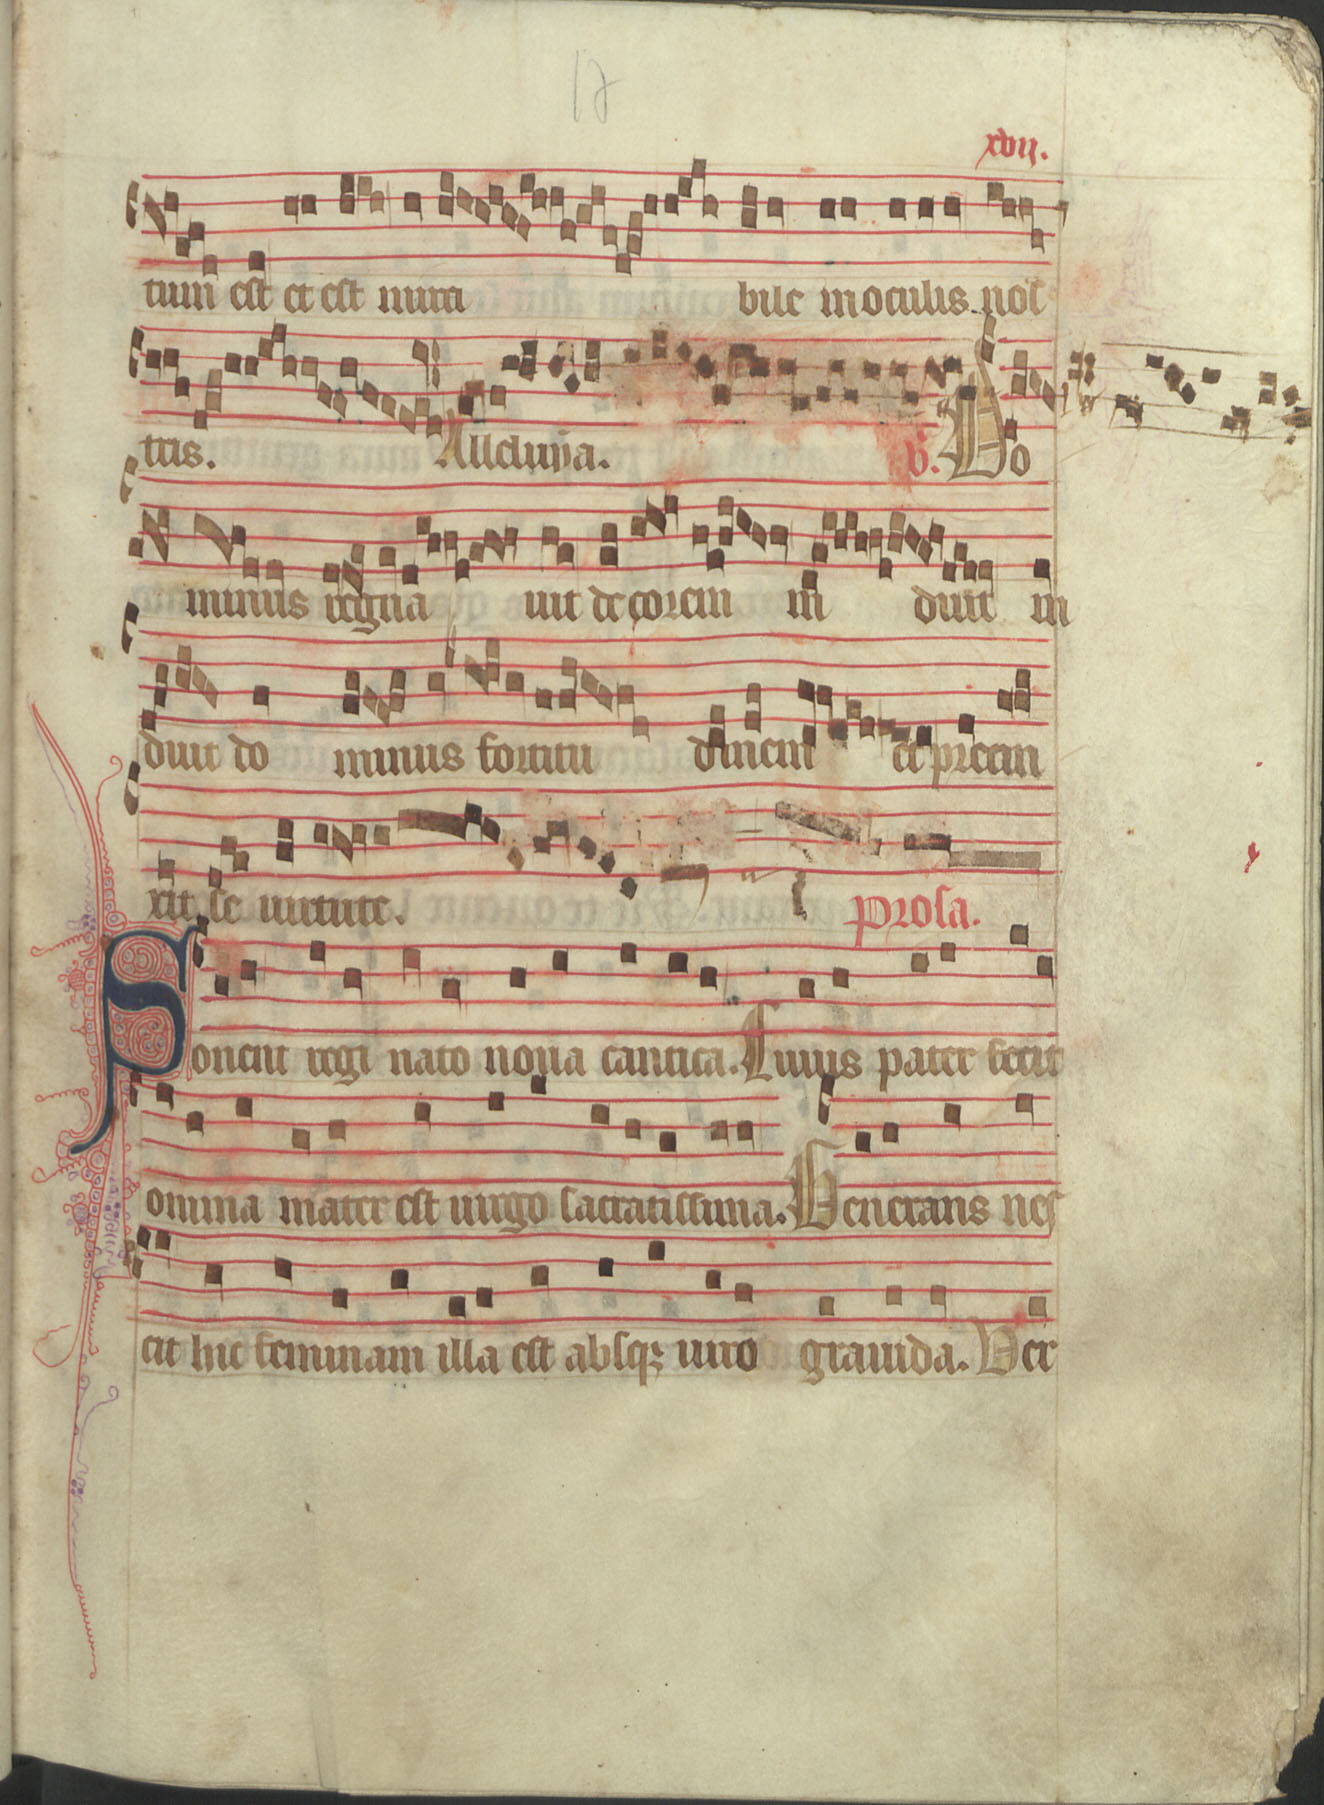 17
xvij.
tum est et est mira bile in oculis nos
tris. Alleluya. v. Do
minus regna uit decorem in duit in
duit do minus fortitu dinem et precin
xit se uirtute. Prosa.
Sonent regi nato noua cantica. Cuius pater fecit
omnia mater est uirgo sacratissima. Generans nes
cit hic feminam illa est absqz uiro grauida. Ver